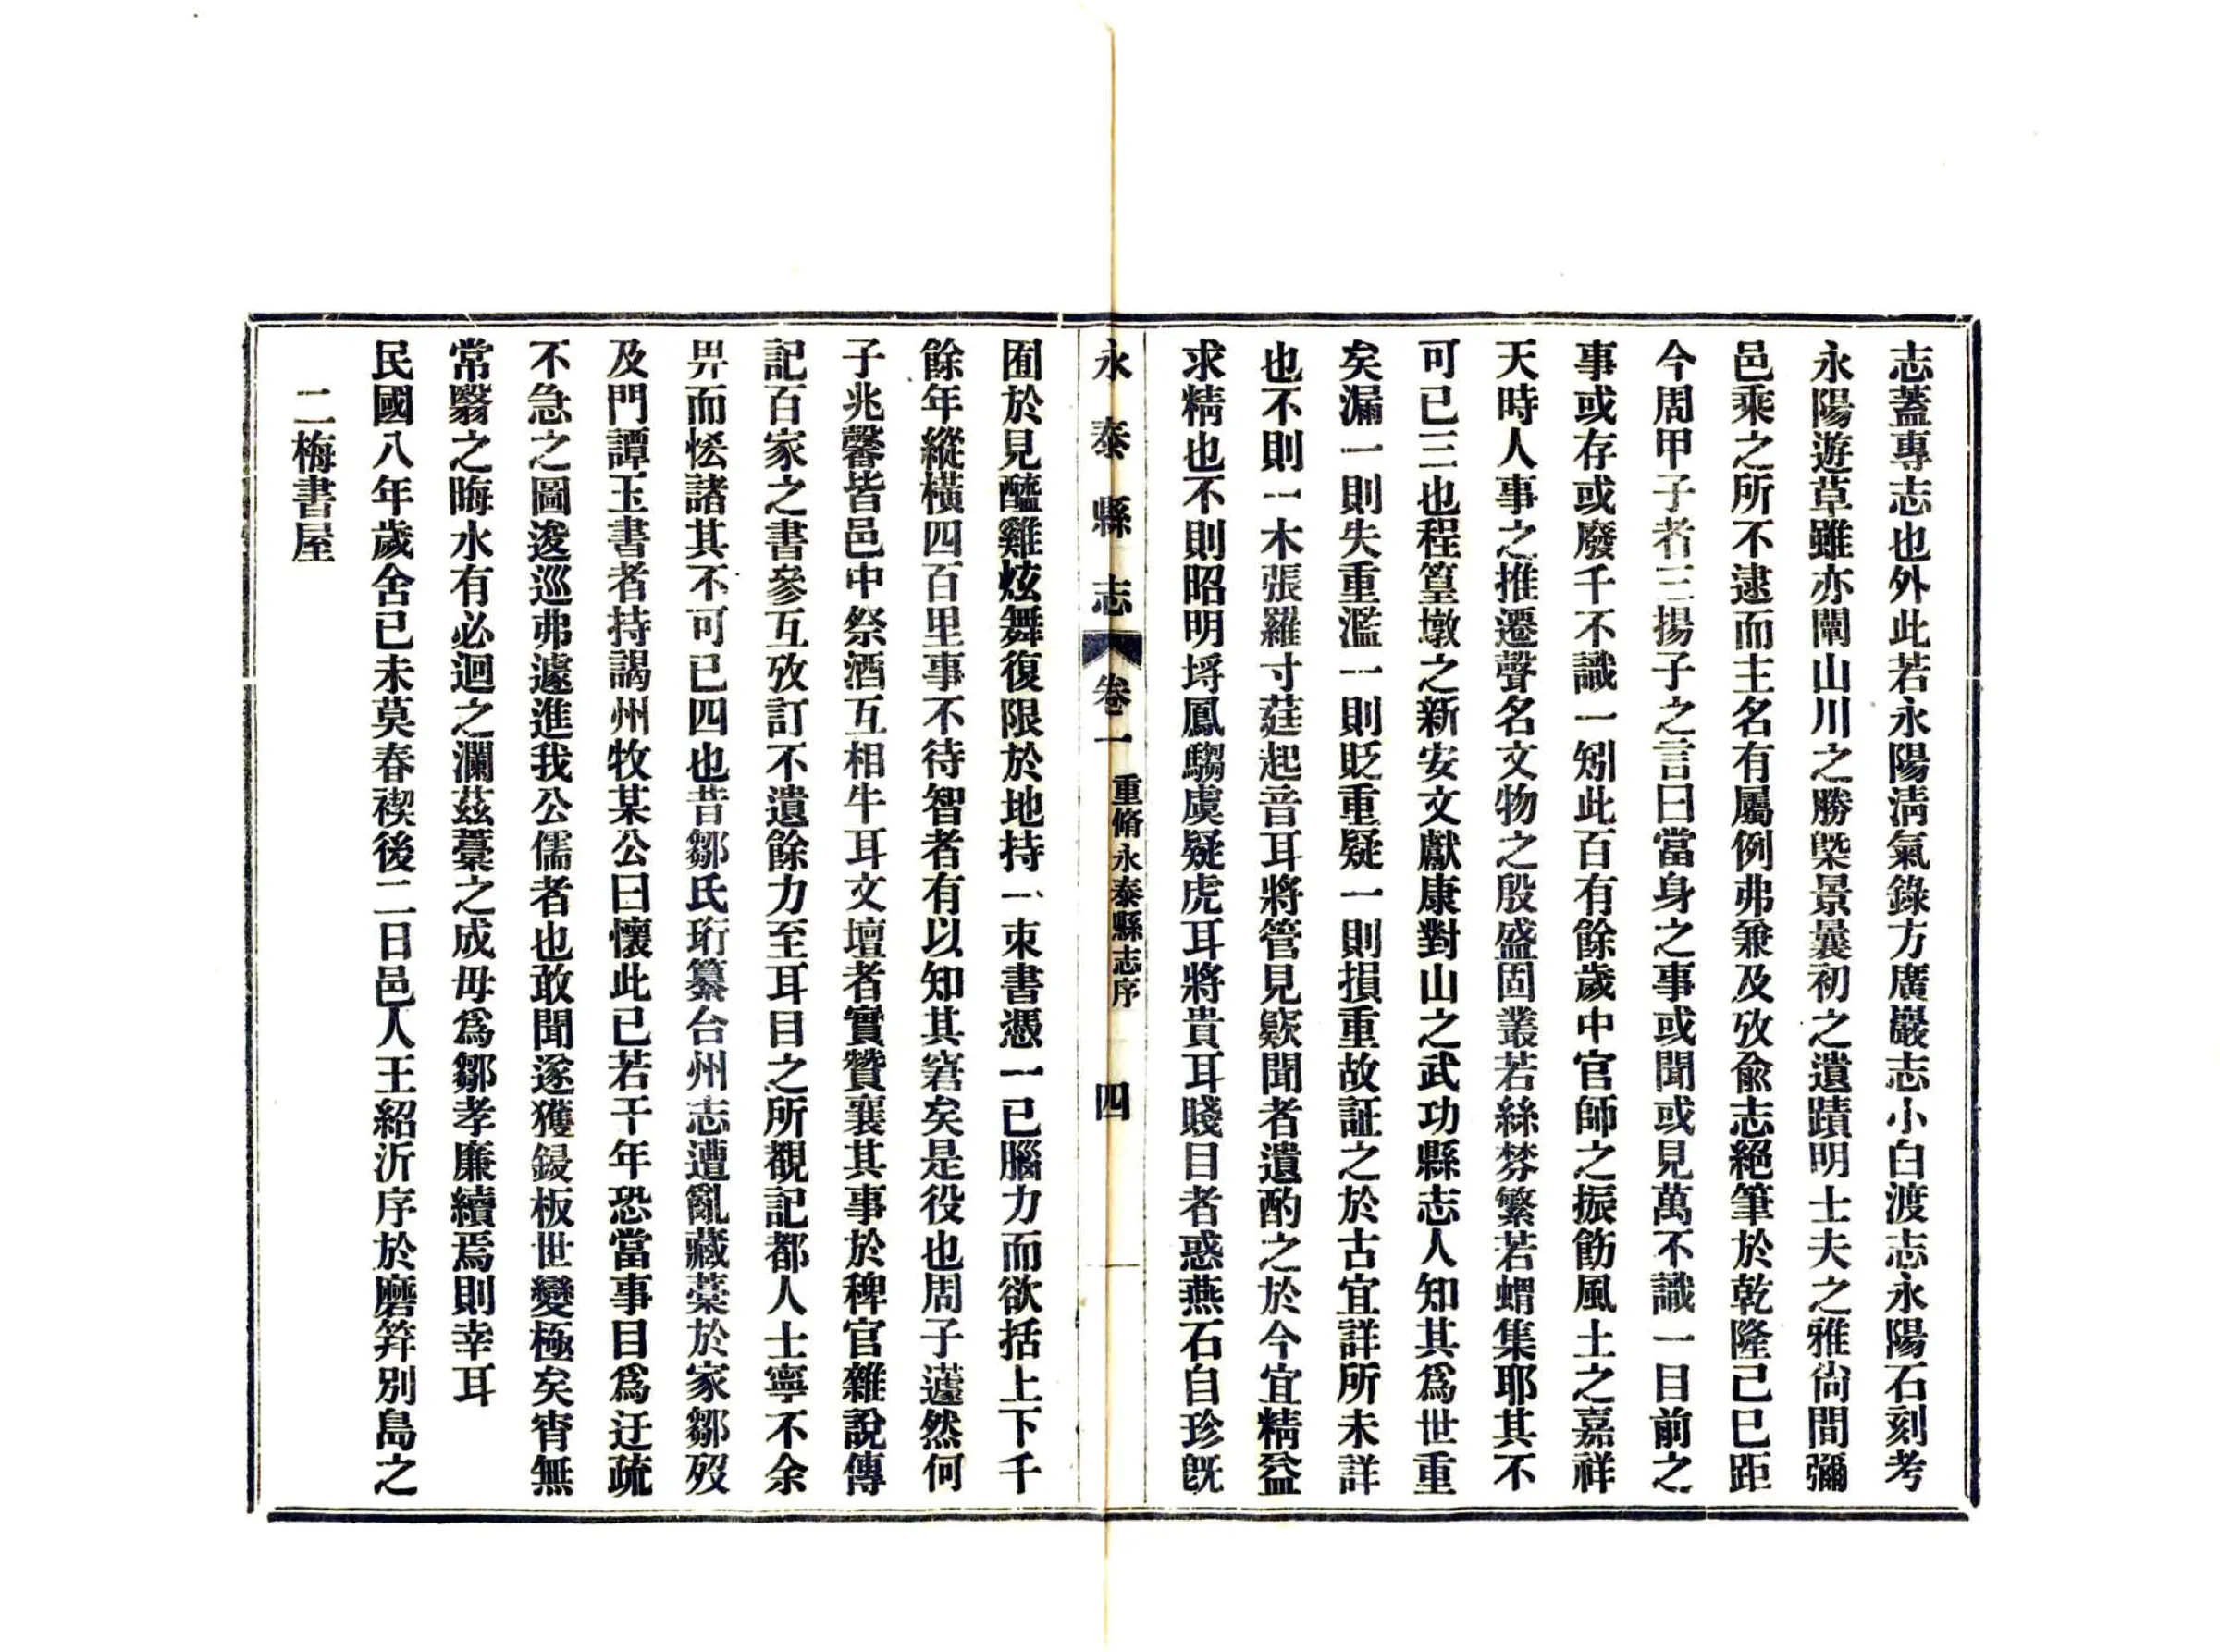 志蓋專志也外此若永陽淸氣錄方廣巖志小白渡志永陽石刻考
永陽遊草雖亦闡山川之勝槩景曩初之遺蹟明士夫之雅尙間彌
邑乘之所不逮而主名有屬例弗兼及攷兪志絕筆於乾隆己巳距
今周甲子者三揚子之言曰當身之事或聞或見萬不識一目前之
事或存或廢千不識一矧此百有餘歲中官師之振飭風土之嘉祥
天時人事之推遷聲名文物之殷盛固叢若絲棼繁若蝟集耶其不
可已三也程篁墩之新安文獻康對山之武功縣志人知其爲世重
矣漏一則失重濫一則貶重疑一則損重故証之於古宜詳所未詳
也不則一木張羅寸莛起音耳將管見窾聞者遺酌之於今宜精益
求精也不則昭明埒鳳騶虞疑虎耳將貴耳賤目者惑燕石自珍旣
永泰縣志 卷一 重脩永泰縣志序 四
囿於見醯雞炫舞復限於地持一束書憑一已腦力而欲括上下千
餘年縱橫四百里事不待智者有以知其窘矣是役也周子蘧然何
子兆馨皆邑中祭酒互相牛耳文壇者實贊襄其事於稗官雜說傳
記百家之書參互攷訂不遺餘力至耳目之所覩記都人士寧不余
畀而恡諸其不可已四也昔鄒氏珩纂台州志遭亂藏藁於家鄒歿
及門譚玉書者持謁州牧某公曰懷此已若干年恐當事目爲迂疏
不急之圖逡巡弗遽進我公儒者也敢聞遂獲鋟板世變極矣宵無
常翳之晦水有必迴之瀾茲藁之成毋爲鄒孝廉續焉則幸耳
民國八年歲舍已未莫春禊後二日邑人王紹沂序於磨笄別島之
二梅書屋